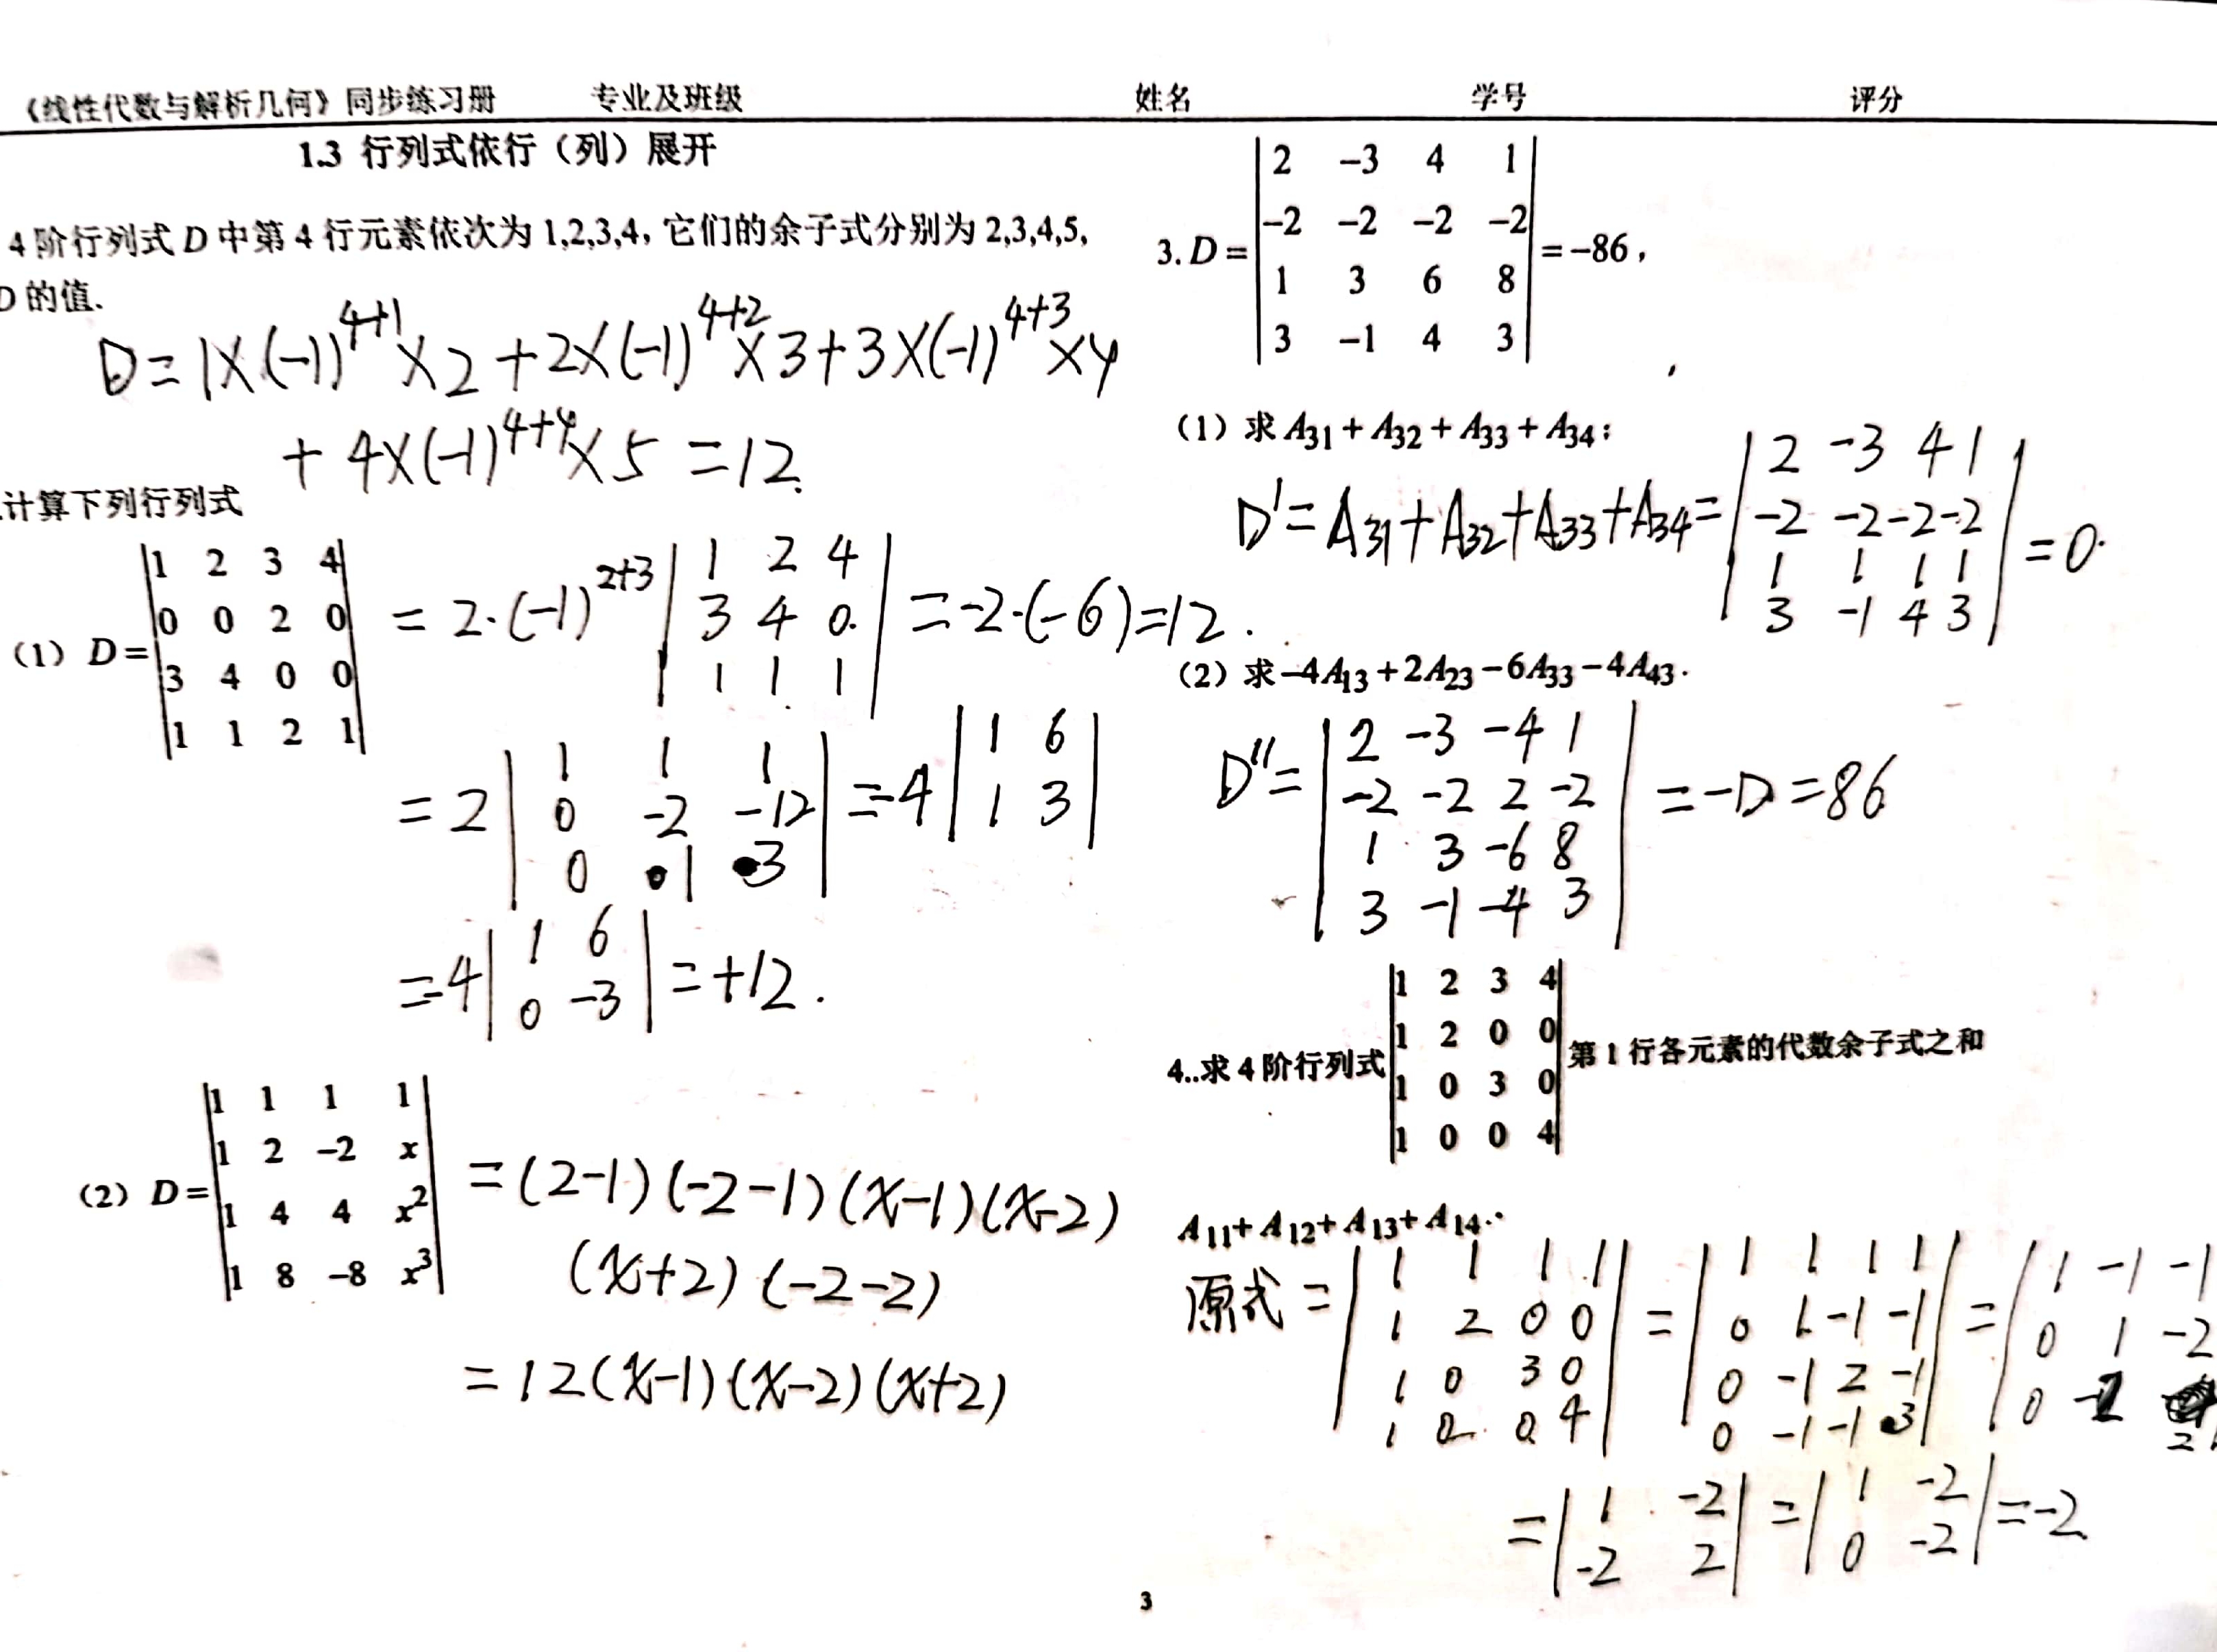 《线性代数与解析几何》同步练习册 专业及班级 姓名 学号 评分
1.3 行列式依行（列）展开
4 阶行列式 D 中第 4 行元素依次为 1,2,3,4, 它们的余子式分别为 2,3,4,5,
D 的值.
D = 1×(-1)^{4+1}×2 + 2×(-1)^{4+2}×3 + 3×(-1)^{4+3}×4
+ 4×(-1)^{4+4}×5 = 12.
.计算下列行列式
(1) D = |1 2 3 4; 0 0 2 0; 3 4 0 0; 1 1 2 1| = 2·(-1)^{2+3} |1 2 4; 3 4 0; 1 1 1| = -2·(-6) = 12.
= 2 |1 1 1; 0 -2 -12; 0 1 3| = -4 |1 6; 1 3|
= -4 |1 6; 0 -3| = +12.
(2) D = |1 1 1 1; 1 2 -2 x; 1 4 4 x²; 1 8 -8 x³| = (2-1)(-2-1)(x-1)(x-2)
(x+2)(-2-2)
= 12(x-1)(x-2)(x+2)
3. D = |2 -3 4 1; -2 -2 -2 -2; 1 3 6 8; 3 -1 4 3| = -86,
(1) 求 A₃₁ + A₃₂ + A₃₃ + A₃₄;
D' = A₃₁ + A₃₂ + A₃₃ + A₃₄ = |2 -3 4 1; -2 -2 -2 -2; 1 1 1 1; 3 -1 4 3| = 0.
(2) 求 -4A₁₃ + 2A₂₃ - 6A₃₃ - 4A₄₃.
D'' = |2 -3 -4 1; -2 -2 2 -2; 1 3 -6 8; 3 -1 -4 3| = -D = 86
4..求 4 阶行列式 |1 2 3 4; 1 2 0 0; 1 0 3 0; 1 0 0 4| 第 1 行各元素的代数余子式之和
A₁₁ + A₁₂ + A₁₃ + A₁₄.
原式 = |1 1 1 1; 1 2 0 0; 1 0 3 0; 1 0 0 4| = |1 1 1 1; 0 1 -1 -1; 0 -1 2 -1; 0 -1 -1 3| = |1 -1 -1; 0 1 -2; 0 -2 2|
= |1 -2; -2 2| = |1 -2; 0 -2| = -2
3